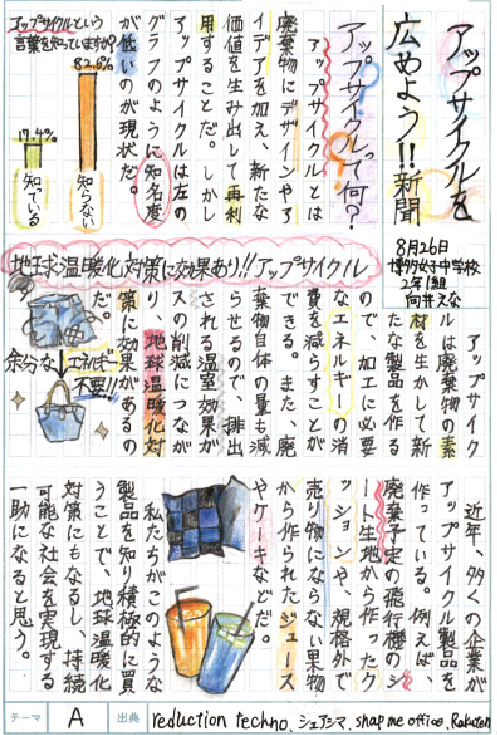 アップサイクルを
広めよう!!新聞
8月26日
博多女子中学校
2年1組
向井えな
アップサイクルって何?
アップサイクルとは
廃棄物にデザインやア
イデアを加え、新たな
価値を生み出して再利
用することだ。しかし
アップサイクルは左の
グラフのように知名度
が低いのが現状だ。
アップサイクルという
言葉を知っていますか?
82.6%
知らない
17.4%
知っている
地球温暖化対策に効果あり!!アップサイクル
アップサイク
ルは廃棄物の素
材を生かして新
たな製品を作る
ので、加工に必要
なエネルギーの消
費を減らすことが
できる。また、廃
棄物自体の量も減
らせるので、排出
される温室効果が
スの削減につなが
り、地球温暖化対
策に効果があるの
だ。
余分な
エネルギー
不要!!
近年、多くの企業が
アップサイクル製品を
作っている。例えば、
廃棄予定の飛行機のシ
ート生地から作ったク
ッションや、規格外で
売り物にならない果物
から作られたジュース
やケーキなどだ。
私たちがこのような
製品を知り積極的に買
うことで、地球温暖化
対策にもなるし、持続
可能な社会を実現する
一助になると思う。
テーマ
A
出典
reduction techno、シェアシマ、shap me office、Rakuten